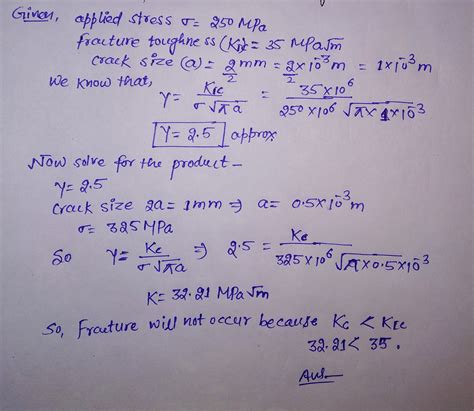 Given, applied stress σ = 250 MPa
fracture toughness (KIC) = 35 MPa√m
Crack size (a) = 2/2 mm = 2×10⁻³/2 m = 1×10⁻³ m
We know that,
Y = KIC / σ√πa = 35×10⁶ / 250×10⁶ √π×1×10⁻³
Y = 2.5 approx
Now solve for the product -
Y = 2.5
Crack size 2a = 1mm ⇒ a = 0.5×10⁻³ m
σ = 325 MPa
So Y = Kc / σ√πa ⇒ 2.5 = Kc / 325×10⁶ √π×0.5×10⁻³
K = 32.21 MPa√m
So, Fracture will not occur because Kc < KIC
32.21 < 35.
Ans